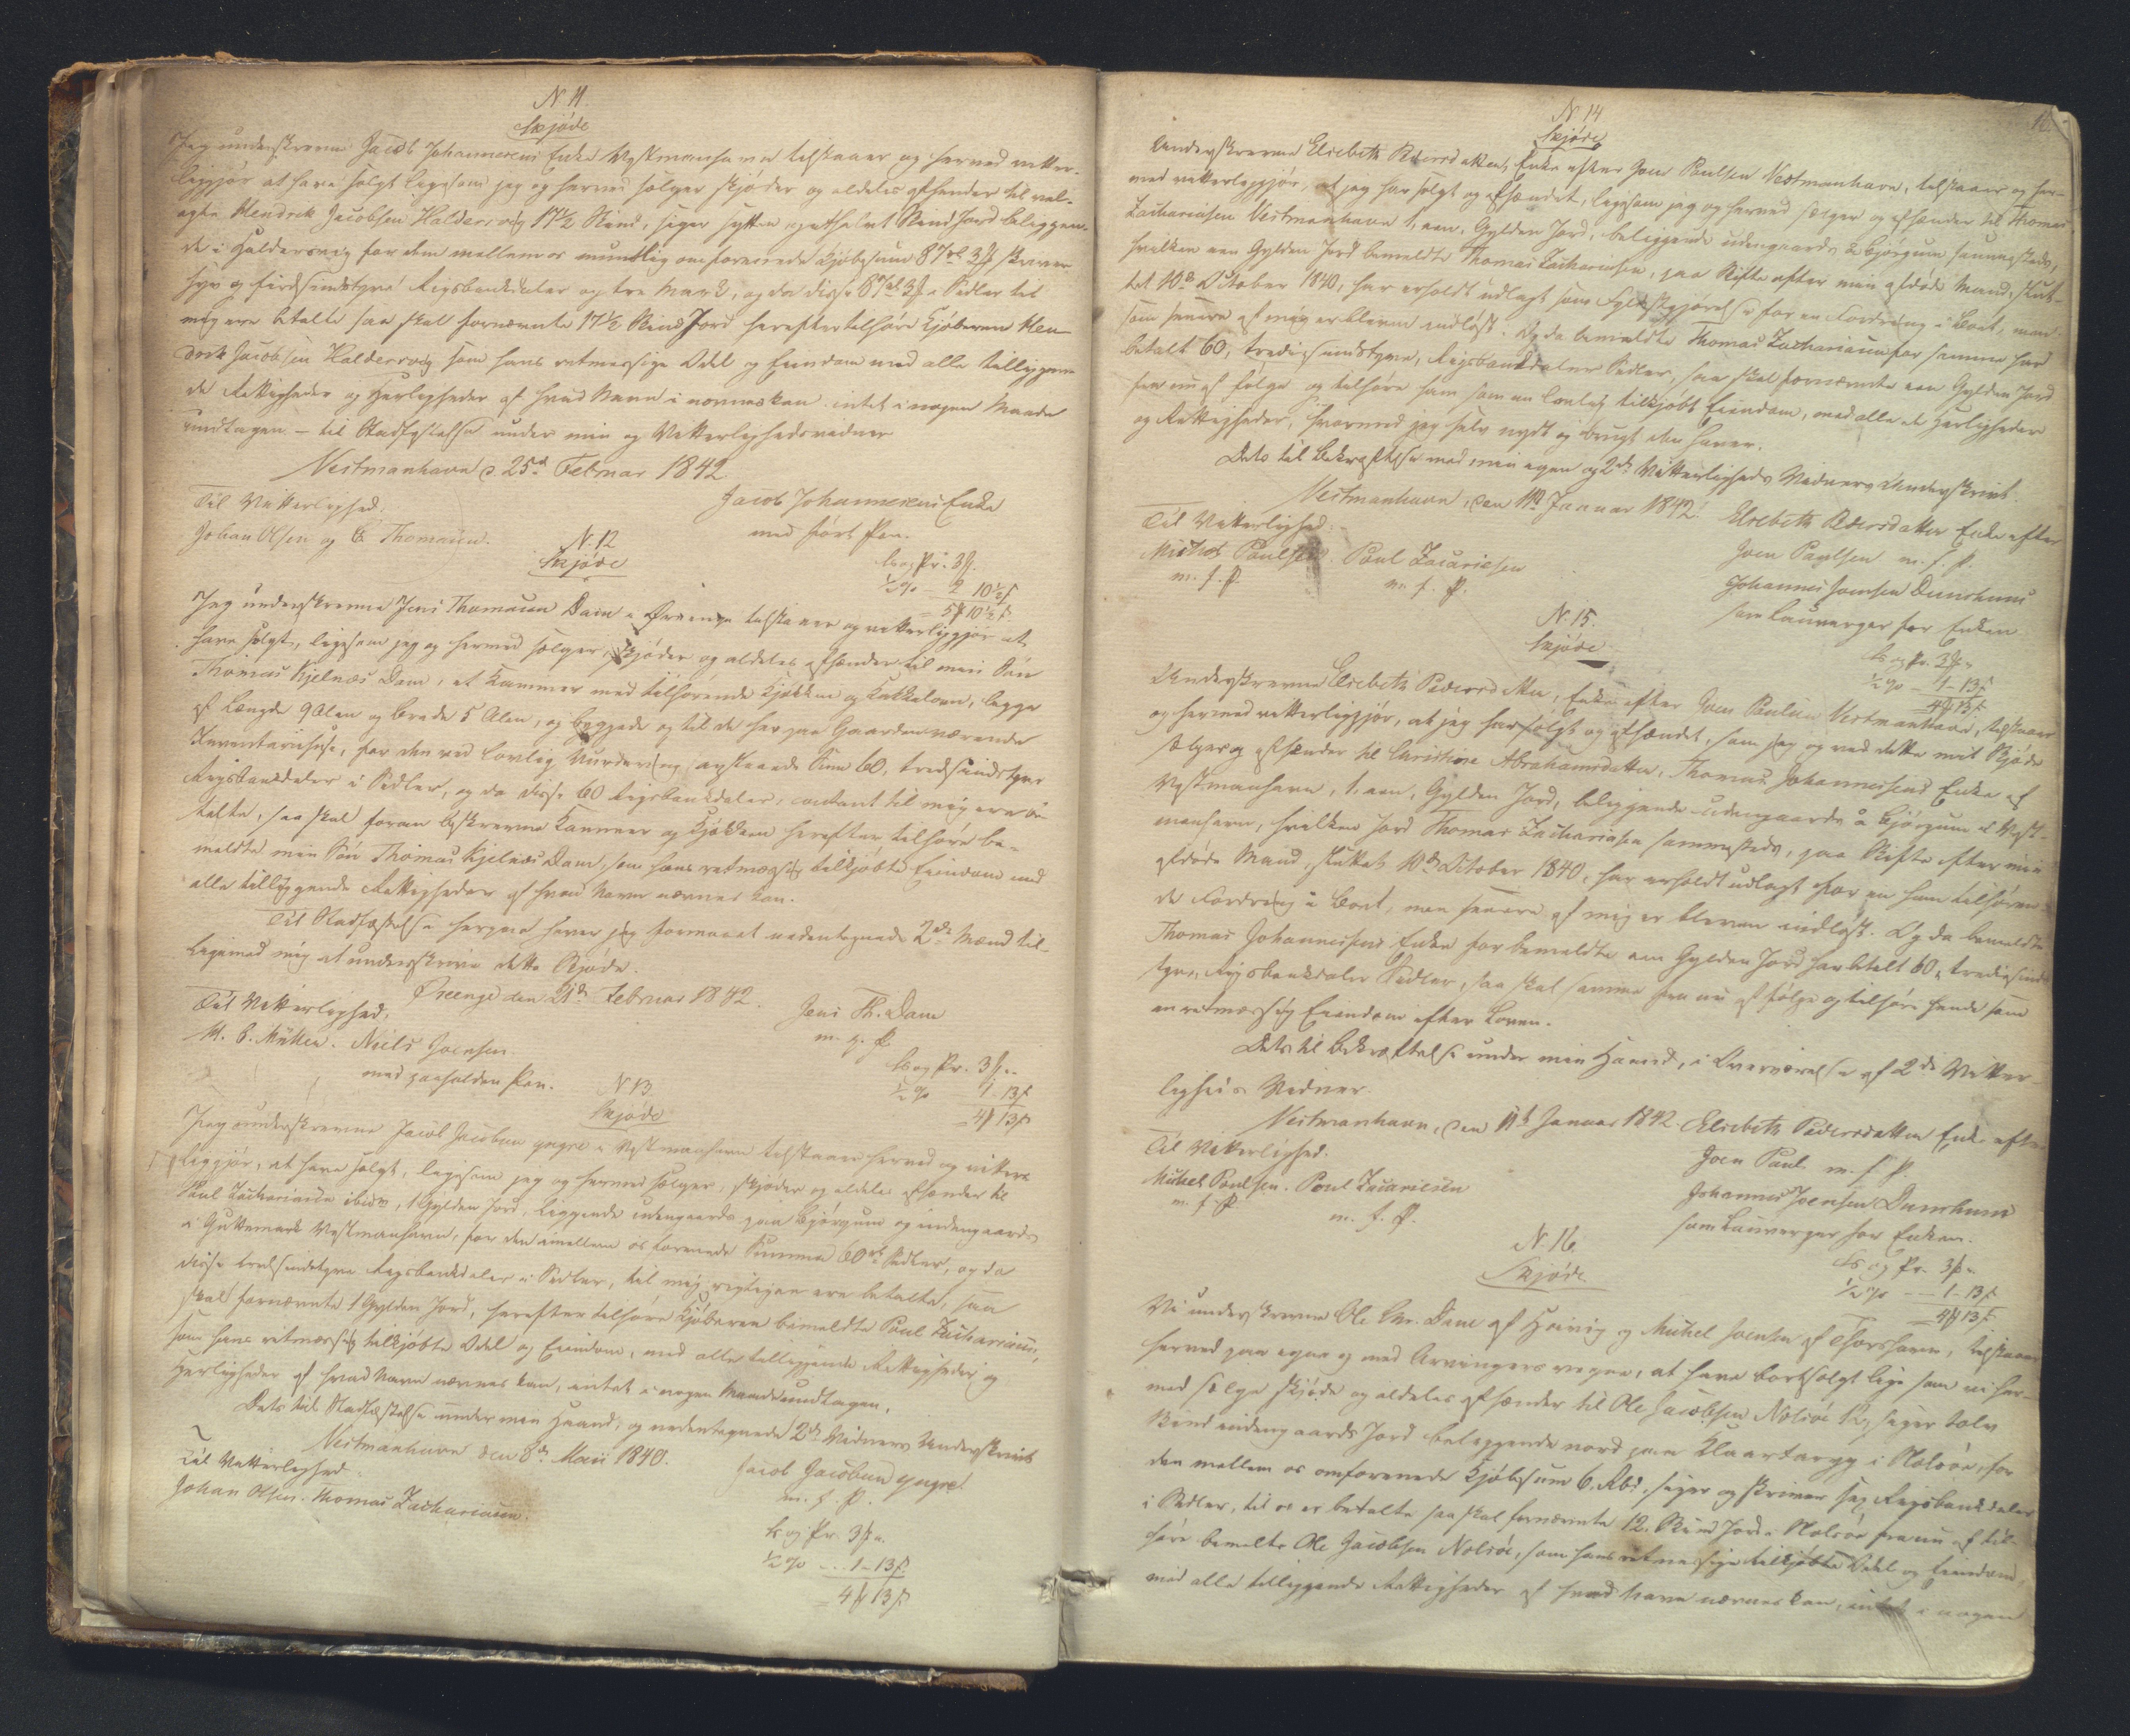 N. 11.
Skjöde
Jeg underskrevne Jacob Johannesens Enke Westmanhavn tilstaaer og herved vitter-
liggjör at have solgt ligesom jeg og herved sælger skjöder og aldeles afhænder til vel-
agte Hendrik Jacobsen Haldersvig 17½ Skind, siger sytten og et halvt Skind Jord beliggen-
de i Haldersvig for den mellem os mundtlig omforenede Kjöbesum 87 rb 3 ß skriver
syv og fiirdsindstyve Rigsbankdaler og tre Mark, og da disse 87 rb 3 ß i Sedler til
mig ere betalte saa skal fornævnte 17½ Skind Jord herefter tilhöre Kjöberen Hen-
drik Jacobsen Haldersvig som hans retmæssige Odel og Eiendom med alle tilliggen-
de Rettigheder og Herligheder af hvad Navn i nævnes kan intet i nogen Maade
undtagen. - til Stadfæstelse under min og Vitterlighedsvidner
Vestmanhavn d. 25d Februar 1842
Til Vitterlighed. Jacob Johannesens Enke
Johan Olsen og Thomasen. med fört Pen.
N. 12
Skjöde
b og Pr. 3 ß.
½ % 2 10½ ß
= 5 ß 10½ ß.
Jeg underskrevne Jens Thomasen Dam i tilstaaer og vitterliggjör at
have solgt, ligesom jeg og hermed sælger, skjöder og aldeles afhænder til min Sön
Thomas Kjelnæs Dam, et Kammer med tilhörende Kjökken og Kakkelovn, begge
af Længde 9 Alen og Brede 5 Alen, og byggede og til de her paa Gaarden værende
Inventariihuse, for den ved lovlig Vurdering Sum 60, tredsindstyve
Rigsbankdaler i Sedler, og da disse 60 Rigsbankdaler, contant til mig ere be-
talte, saa skal foran beskrevne Kammer og Kjökken herefter tilhöre be-
meldte min Sön Thomas Kjelnæs Dam, som hans retmæssig tilkjöbte Eiendom med
alle tilliggende Rettigheder af hvad Navn nævnes kan.
Til Stadfæstelse herpaa haver jeg formaaet nedentegnede 2de Mænd til-
ligemed mig at underskrive dette Skjöde.
den 21d Februar 1842.
Til Vitterlighed, Jens Th. Dam
M. Müller. Niels Joensen m. g. P.
med paaholden Pen.
N. 13
Skjöde
b og Pr. 3 ß.
½ % 1 - 13 ß
= 4 ß 13 ß
Jeg underskrevne Jacob Jacobsen yngre i Vestmanhavn tilstaaer herved og vitter-
liggjör, at have solgt, ligesom jeg og hermed sælger, skjöder og aldeles afhænder til
Paul Zachariasen ibidm, 1 Gylden Jord, liggende udengaards paa Björgum og indengaards
i Guttemark Vestmanhavn, for den imellem os forenede Summa 60 rb Sedler, og da
disse tredsindstyve Rigsbankdaler i Sedler, til mig rigtigen ere betalte, saa
skal fornævnte 1 Gylden Jord, herefter tilhöre Kjöberen bemeldte Paul Zachariasen,
som hans retmæssig tilkjöbte Odel og Eiendom, med alle tilliggende Rettigheder og
Herligheder af hvad Navn nævnes kan, intet i nogen Maade undtagen.
Dets til Stadfæstelse under min Haand, og nedentegnede 2de Vidners Underskrivt
Vestmanhavn den 8de Maii 1840.
Til Vitterlighed. Jacob Jacobsen yngre
Johan Olsen. Thomas Zachariasen. m. f. P.
b og Pr. 3 ß.
½ % - - 1 - 13 ß
= 4 ß 13 ß
N. 14
Skjöde
Underskrevne Elsebeth Pedersdatter, Enke efter Joen Poulsen Vestmanhavn, tilstaaer og her-
med vitterliggjör, at jeg har solgt og afhændet, ligesom jeg og herved sælger og afhænder til Thomas
Zachariasen Vestmanhavn 1, een, Gylden Jord, beliggende udengaards å Bjørgum sammesteds,
hvilken een Gylden Jord bemeldte Thomas Zachariasen, paa Skifte efter min afdöde Mand, slut-
tet 10de October 1840, har erholdt udlagt som Fyldestgjörelse for en Fordring i Boet, men
som senere af mig er bleven indlöst. Og da bemeldte Thomas Zachariasen for samme har
betalt 60, tredsindstyve, Rigsbankdaler Sedler, saa skal fornævnte een Gylden Jord
fra nu af fölge og tilhöre ham som en lovlig tilkjöbt Eiendom, med alle de Herligheder
og Rettigheder, hvormed jeg selv nydt og brugt den haver.
Dets til Bekræftelse med min egen og 2de Vitterligheds Vidners Underskrivt.
Vestmanhavn, den 11te Januar 1842. Elsebeth Pedersdatter Enke efter
Til Vitterlighed. Joen Poulsen m. f. P.
Michel Poulsen. Paul Zacariesen Johannes Joensen
m. f. P. m. f. P. som Laugværger for Enken
N. 15.
Skjöde
b og Pr. 3 ß
½ % - 1 - 13 ß
4 ß 13 ß
Underskrevne Elsebeth Pedersdatter, Enke efter Joen Poulsen Vestmanhavn, tilstaaer
og hermed vitterliggjör, at jeg har solgt og afhændet, som jeg og ved dette mit Skjöde
sælger og afhænder til Christine Abrahamsdatter, Thomas Johannesens Enke af
Vestmanhavn, 1, een, Gylden Jord, beliggende udengaards å Bjørgum i Vest-
manhavn, hvilken Jord Thomas Zachariasen sammesteds, paa Skifte efter min
afdöde Mand, sluttet 10de October 1840, har erholdt udlagt for en ham tilhören-
de Fordring i Boet, men senere af mig er bleven indlöst. Og da bemeldte
Thomas Johannesens Enke for bemeldte een Gylden Jord har betalt 60, tredsinds-
tyve, Rigsbankdaler Sedler, saa skal samme fra nu af fölge og tilhöre hende som
en retmæssig Eiendom efter Loven.
Dets til Bekræftelse under min Haand, i Overværelse af 2de Vitter-
ligheds Vidner.
Vestmanhavn, den 11te Januar 1842. Elsebeth Pedersdatter Enke efter
Til Vitterlighed. Joen Poul. m. f. P.
Michel Poulsen. Poul Zacariesen Johannes Joensen
m. f. P. m. f. P. som Laugværger for Enken.
N. 16.
Skjöde
b og Pr. 3 ß
½ % - - 1 - 13 ß
= 4 ß 13 ß
Vi underskrevne Ole Chr. Dam af Hoivig og Michel Joensen af Thorshavn, tilstaaer
herved paa egne og med Arvingers vegne, at have bortsolgt lige som vi her-
med sælge skjöde og aldeles afhænder til Ole Jacobsen Nolsöe 12, siger tolv
Skind indengaards Jord beliggende nord paa i Nolsöe, for
den mellem os omforenede Kjöbesum 6. Rbd. siger og skriver sex Rigsbankdaler
i Sedler, til os er betalte saa skal fornævnte 12. Skind Jord i Nolsöe fra nu af til-
höre bemelte Ole Jacobsen Nolsöe, som hans retmæssige tilkjöbte Odel og Eiendom,
med alle tilliggende Rettigheder af hvad Navn nævnes kan, intet i nogen